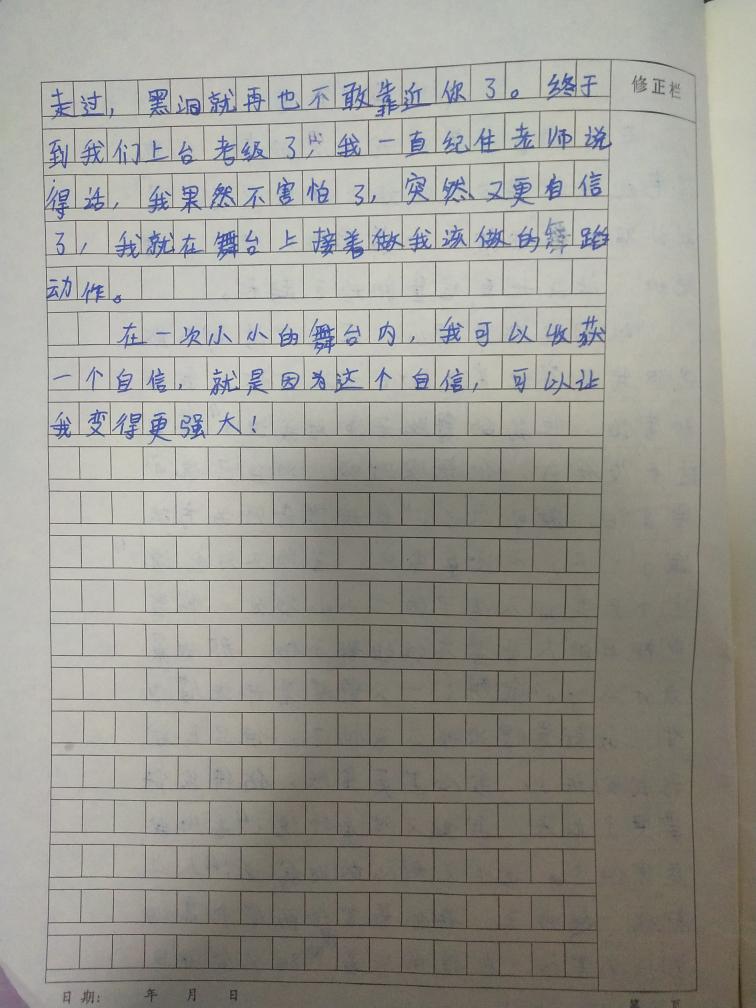 修正栏
走过，黑洞就再也不敢靠近你了。终于
到我们上台考级了，我一直纪住老师说
得话，我果然不害怕了，突然又更自信
了，我就在舞台上接着做我该做的舞蹈
动作。
在一次小小的舞台内，我可以收获
一个自信，就是因为这个自信，可以让
我变得更强大！
日期: 年 月 日
第 页